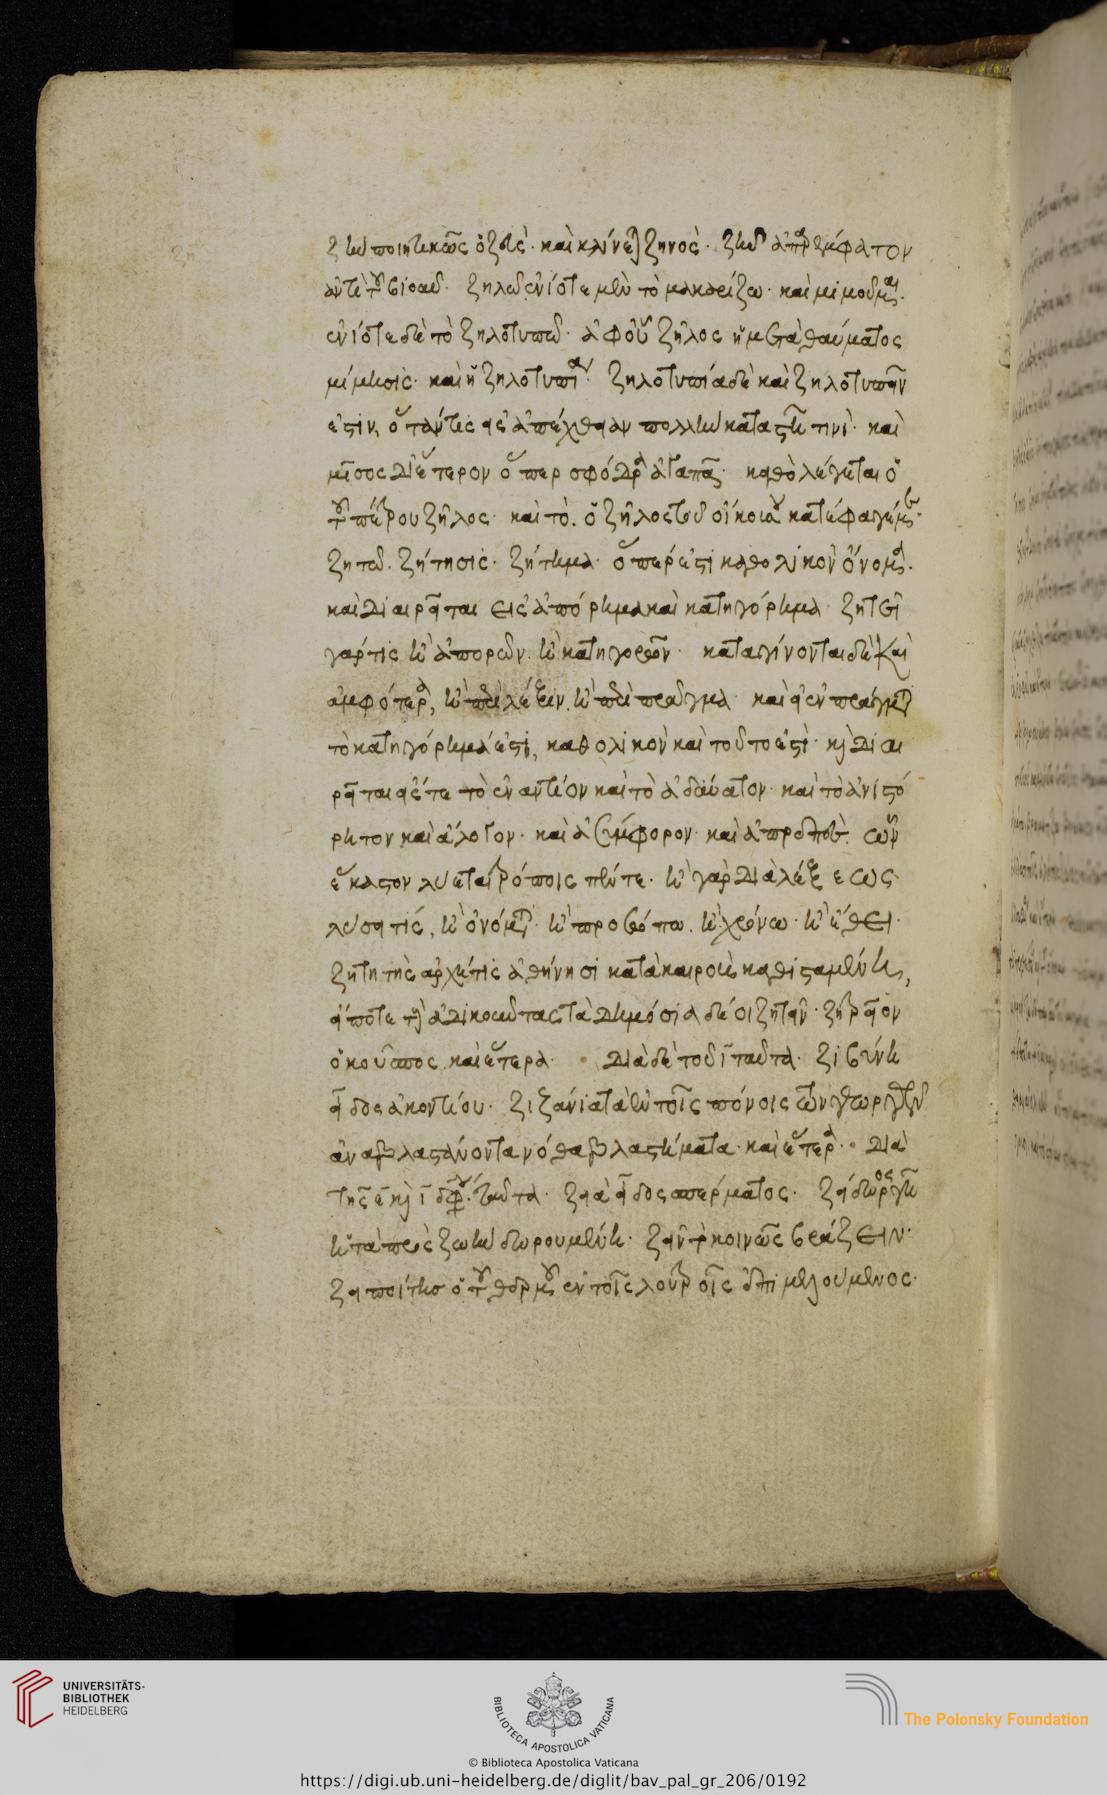 ζὴν ποιητικῶς ὁ ζεύς· καὶ κλίνεται ζηνός· ζῆν ἀπαρέμφατον
ἀντὶ τοῦ
ζηλῶ ἐνίοτε μὲν τὸ μακαρίζω· καὶ μιμοῦμαι·
ἐνίοτε δὲ τὸ ζηλοτυπῶ· ἀφ' οὗ ζῆλος ἡ μετὰ θαύματος
μίμησις· καὶ ἡ ζηλοτυπία· ζηλοτυπία δὲ καὶ ζηλοτυπεῖν
ἐστιν, ὅταν τις εἰς ἀπέχθειαν πολλὴν καταστῇ τινι· καὶ
μῖσος δι' ἕτερον ὅπερ σφόδρα ἀγαπᾷ· καθὸ λέγεται ὁ
τοῦ πέτρου ζῆλος· καὶ τὸ· ὁ ζῆλος τοῦ οἴκου κατέφαγέ με·
ζητῶ· ζήτησις· ζήτημα· ὅπερ ἐστὶ καθολικὸν ὄνομα·
καὶ διαιρεῖται εἰς ἀπόρημα καὶ κατηγόρημα· ζητεῖ
γάρ τις ἢ ἀπορῶν· ἢ κατηγορῶν· καταγίνονται δὲ καὶ
ἀμφότερα, ἢ περὶ λέξιν· ἢ περὶ πρᾶγμα· καὶ εἰ ἐν πράγματι
τὸ κατηγόρημά ἐστι, καθολικὸν καὶ τοῦτο ἐστὶ· καὶ διαι
ρεῖται εἴς τε τὸ ἐναντίον καὶ τὸ ἀδύνατον· καὶ τὸ ἀνιστό
ρητον καὶ ἄλογον· καὶ ἀσύμφορον· καὶ ἀπρεπές·
ἕκαστον λύεται τρόποις πέντε· ἢ γὰρ διὰ λέξεως
λύσει τις, ἢ ὀνόματι· ἢ προσώπω· ἢ χρόνω· ἢ ἔθει·
ζητητὴς ἀρχή τις ἀθήνησι κατὰ καιροὺς καθισταμένη,
εἴποτε τοὺς ἀδικοῦντας τὰ δημόσια δέοι ζητεῖν· ζήτρειον
καὶ ἕτερα· διὰ δὲ τοῦ ῑ ταῦτα· ζιβύνη
εἶδος ἀκοντίου· ζιζάνια τὰ ἐν τοῖς πόνοις τῶν γεωργῶν
ἀναβλαστάνοντα νόθα βλαστήματα· καὶ ἕτερα· διὰ
τῆς ε̄ῑ διφθόγγου ταῦτα· ζειὰ εἶδος σπέρματος· ζείδωρος γῆ
ἡ τὰ πρὸς ζωὴν δωρουμένη· ζεῖν τὸ κοινῶς βράζειν·
ὁ τοῦ θερμοῦ ἐν τοῖς λουτροῖς ἐπιμελούμενος·
UNIVERSITÄTS-
BIBLIOTHEK
HEIDELBERG
BIBLIOTECA APOSTOLICA VATICANA
The Polonsky Foundation
© Biblioteca Apostolica Vaticana
https://digi.ub.uni-heidelberg.de/diglit/bav_pal_gr_206/0192